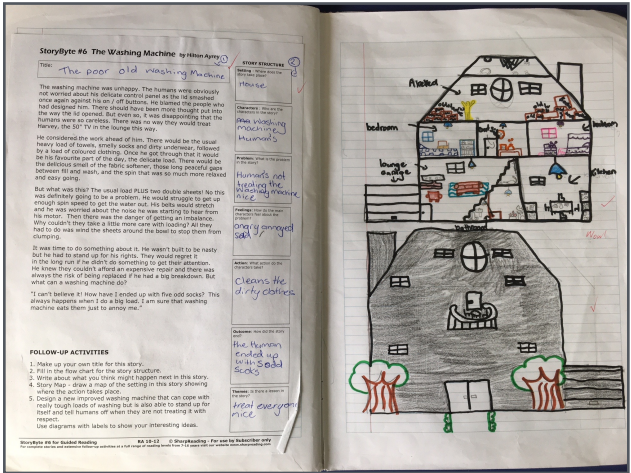 StoryByte #6 The Washing Machine by Hilton Ayrey
Title:
The poor old washing Machine
The washing machine was unhappy. The humans were obviously
not worried about his delicate control panel as the lid smashed
once again against his on / off buttons. He blamed the people who
had designed him. There should have been more thought put into
the way the lid opened. But even so, it was disappointing that the
humans were so careless. There was no way they would treat
Harvey, the 50" TV in the lounge this way.
He considered the work ahead of him. There would be the usual
heavy load of towels, smelly socks and dirty underwear, followed
by a load of coloured clothing. Once he got through that it would
be his favourite part of the day, the delicate load. There would be
the delicious smell of the fabric softener, those long peaceful gaps
between fill and wash, and the spin that was so much more relaxed
and easy going.
But what was this? The usual load PLUS two double sheets! No this
was definitely going to be a problem. He would struggle to get up
enough spin speed to get the water out. His belts would stretch
and he was worried about the noise he was starting to hear from
his motor. Then there was the danger of getting an imbalance.
Why couldn't they take a little more care with loading? All they
had to do was wind the sheets around the bowl to stop them from
clumping.
It was time to do something about it. He wasn't built to be nasty
but he had to stand up for his rights. They would regret it
in the long run if he didn't do something to get their attention.
He knew they couldn't afford an expensive repair and there was
always the risk of being replaced if he had a big breakdown. But
what can a washing machine do?
"I can't believe it! How have I ended up with five odd socks? This
always happens when I do a big load. I am sure that washing
machine eats them just to annoy me."
FOLLOW-UP ACTIVITIES
1. Make up your own title for this story.
2. Fill in the flow chart for the story structure.
3. Write about what you think might happen next in this story.
4. Story Map - draw a map of the setting in this story showing
where the action takes place.
5. Design a new improved washing machine that can cope with
really tough loads of washing but is also able to stand up for
itself and tell humans off when they are not treating it with
respect.
Use diagrams with labels to show your interesting ideas.
StoryByte #6 for Guided Reading RA 10-12 © SharpReading - For use by Subscriber only
STORY STRUCTURE
Setting - Where does the
story take place?
House
Characters - Who are the
characters in the story?
washing
machine
Humans
Problem: What is the problem
in the story?
Human's not
treating the
washing machine
nice
Feelings: How do the main
characters feel about the
problem?
angry annoyed
sad
Action: What action do the
characters take?
Cleans the
dirty clothes
Outcome: How did the story
end?
the Human
ended up
with 5 odd
socks
Themes: Is there a lesson in
the story?
treat everyone
nice
bedroom
lounge
kitchen